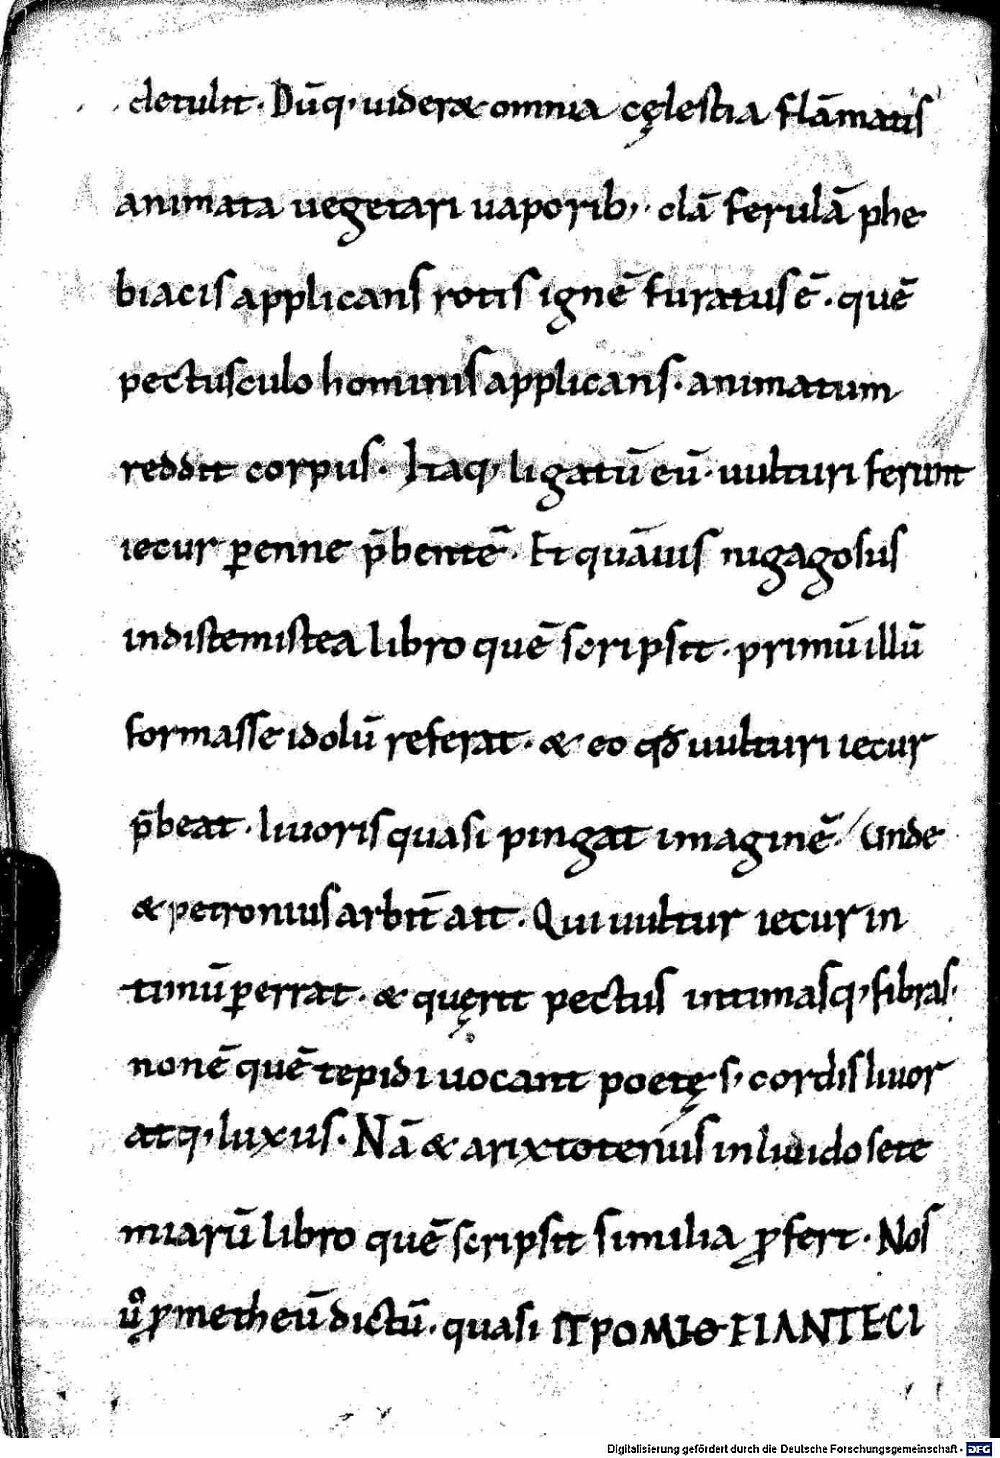 detulit · Dūq; uider& omnia cęlestia flāmatis
animata uegetari uaporib; · clā ferulā phe
biacis applicans rotis ignē furatus ē · quē
pectusculo hominis applicans · animatum
reddit corpus · Itaq; ligatū eū · uulturi ferunt
iecur ꝑenne p̄bentē · Et quāuis nigagosus
indistemistea libro quē scripsit · primū illū
formasse idolū referat · & eo qđ uulturi iecur
p̄beat · liuoris quasi pingat imaginē · Unde
& petronius arbit̄ ait · Qui uultur iecur in
timū ꝑerrat · & quęrit pectus intimasq; fibras ·
non ē quē tepidi uocant poetę s; cordis liuor
atq; luxus · Nā & arixtotenius in liuido sete
miarū libro quē scripsit similia ꝓfert · Nos
uͦ ꝓmetheū dictū · quasi ΠΡΟΜΙΘ·FIANTECI
Digitalisierung gefördert durch die Deutsche Forschungsgemeinschaft - DFG